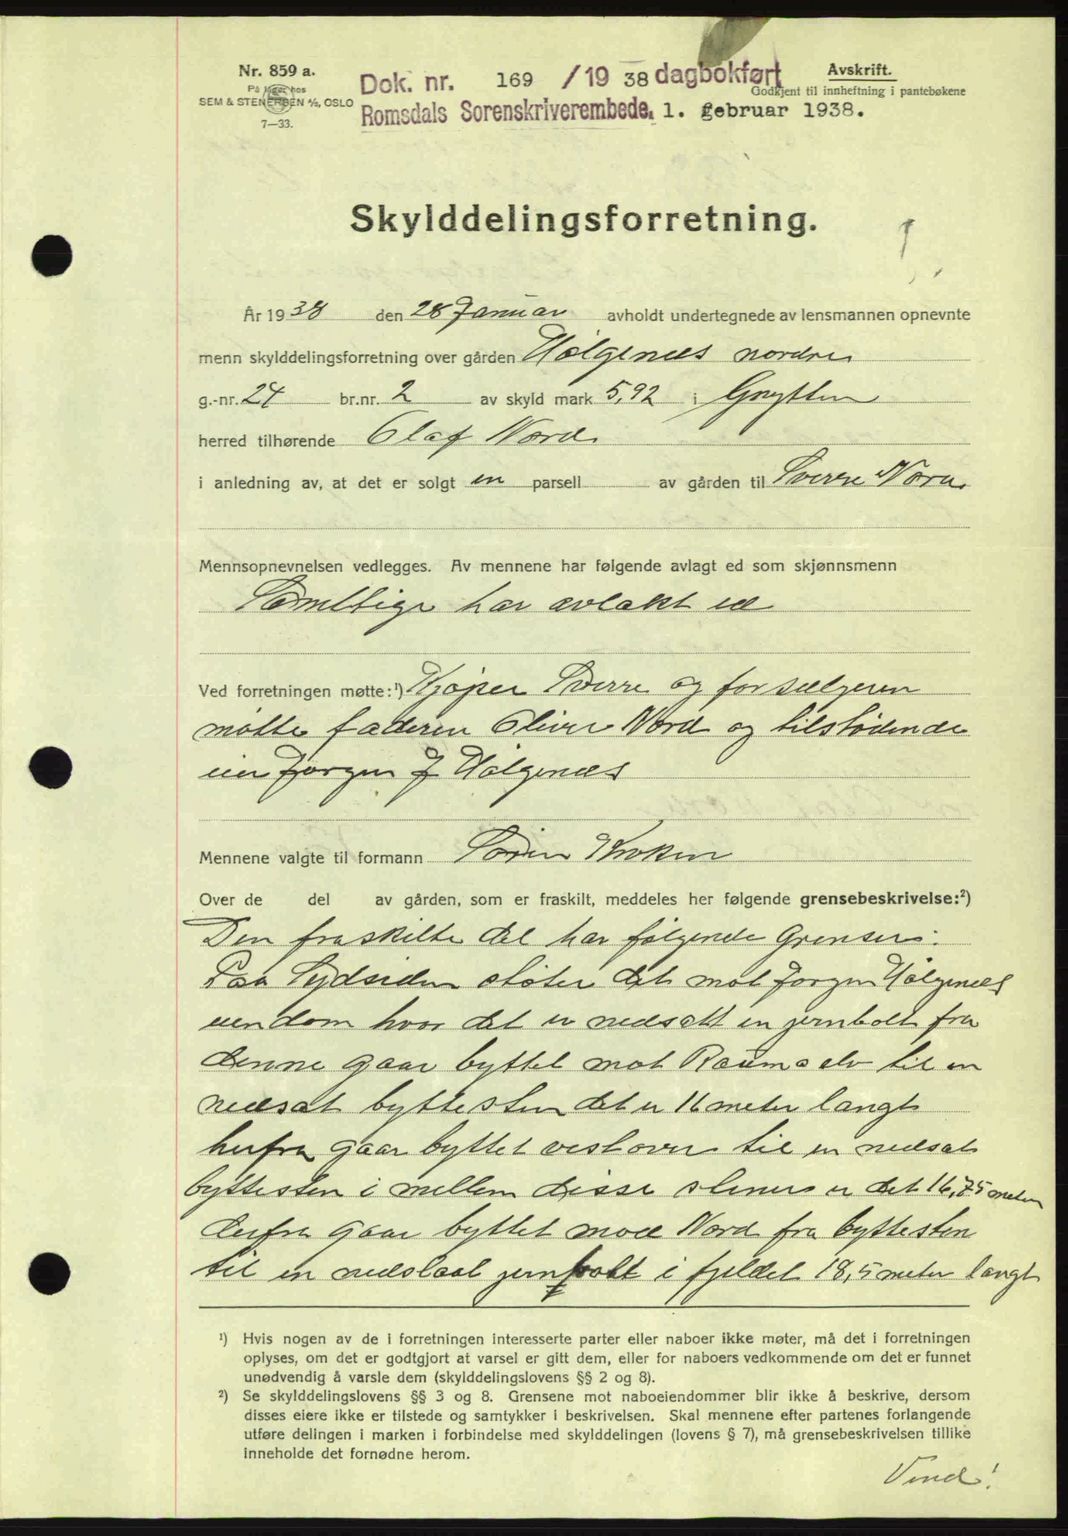 Nr. 859 a.
På lager hos
SEM & STENERSEN A/S, OSLO
7—33.
Dok. nr. 169 /1938 dagbokført
Romsdals Sorenskriverembede, 1. februar 1938.
Avskrift.
Godkjent til innheftning i pantebøkene
Skylddelingsforretning.
År 1938 den 28 Januar avholdt undertegnede av lensmannen opnevnte
menn skylddelingsforretning over gården Hølgenes nordre
g.-nr. 24 br.nr. 2 av skyld mark 5,92 i Grytten
herred tilhørende Olaf Nord
i anledning av, at det er solgt en parsell av gården til Sverre Nord
Mennsopnevnelsen vedlegges. Av mennene har følgende avlagt ed som skjønnsmenn
Samtlige har avlakt ed
Ved forretningen møtte:¹) Kjøper Sverre og for sælgeren
møtte faderen Oliver Nord og tilstødende
eier Jørgen J Hølgenes
Mennene valgte til formann Søren Kroken
Over de del av gården, som er fraskilt, meddeles her følgende grensebeskrivelse:²)
Den fraskilte del har følgende Grenser:
Paa Sydsiden støter det mot Jørgen Hølgenes
eiendom hvor det er nedsatt en jernbolt fra
denne gaar byttet mot Rauma elv til en
nedsat byttesten det er 16 meter langt
herfra gaar byttet vestover til en nedsat
byttesten i mellem disse stener er det 16,75 meter
derfra gaar byttet mod Nord fra byttesten
til en nedslaat jernbolt i fjeldet 18,5 meter langt
¹) Hvis nogen av de i forretningen interesserte parter eller naboer ikke møter, må det i forretningen
oplyses, om det er godtgjort at varsel er gitt dem, eller for naboers vedkommende om det er funnet
unødvendig å varsle dem (skylddelingslovens §§ 2 og 8).
²) Se skylddelingslovens §§ 3 og 8. Grensene mot naboeiendommer blir ikke å beskrive, dersom
disses eiere ikke er tilstede og samtykker i beskrivelsen. Skal mennene efter partenes forlangende
utføre delingen i marken i forbindelse med skylddelingen (lovens § 7), må grensebeskrivelsen tillike
inneholde det fornødne herom.
Vend!